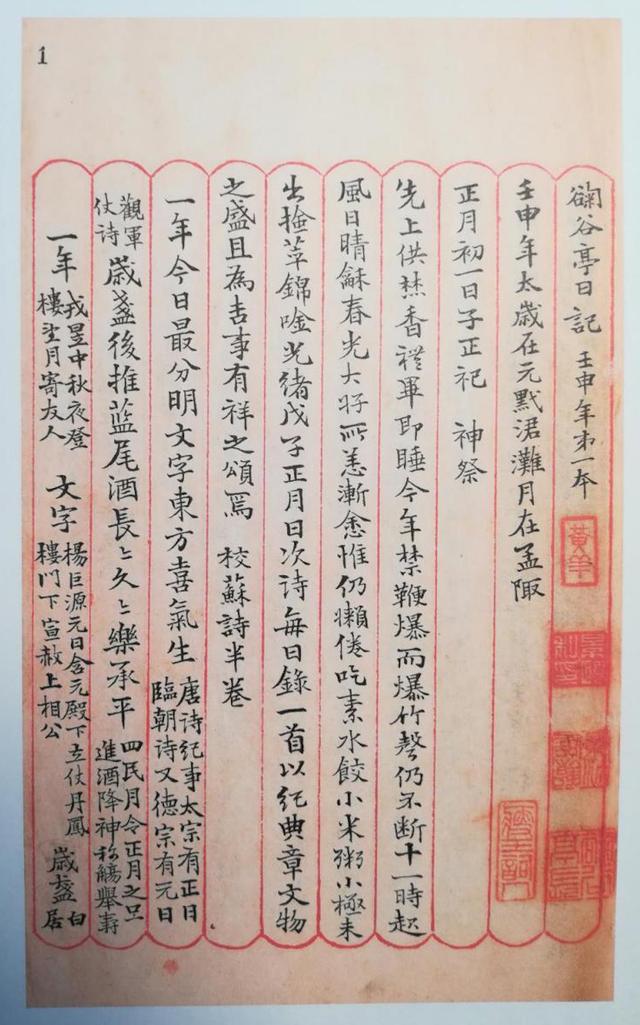 1
䕮谷亭日記 壬申年第一本
黄羊
壬申年太歲在元黓涒灘月在孟陬
正月初一日子正祀 神祭
先上供焚香禮畢即睡今年禁鞭爆而爆竹聲仍不斷十一時起
風日晴龢春光大好所恙漸愈惟仍嬾倦吃素水餃小米粥小極未
出撿莘錦唫光緒戊子正月日次詩每日錄一首以紀典章文物
之盛且為吉事有祥之頌焉 校蘇詩半卷
一年今日最分明文字東方喜氣生 唐詩紀事太宗有正日
臨朝詩又德宗有元日
觀軍
仗詩 歲盞後推藍尾酒長〻久〻樂承平 四民月令正月之旦
進酒降神稱觴舉壽
一年 戎昱中秋夜登
樓望月寄友人 文字 楊巨源元日含元殿下立仗丹鳳
樓門下宣赦上相公 歲盞 白
居